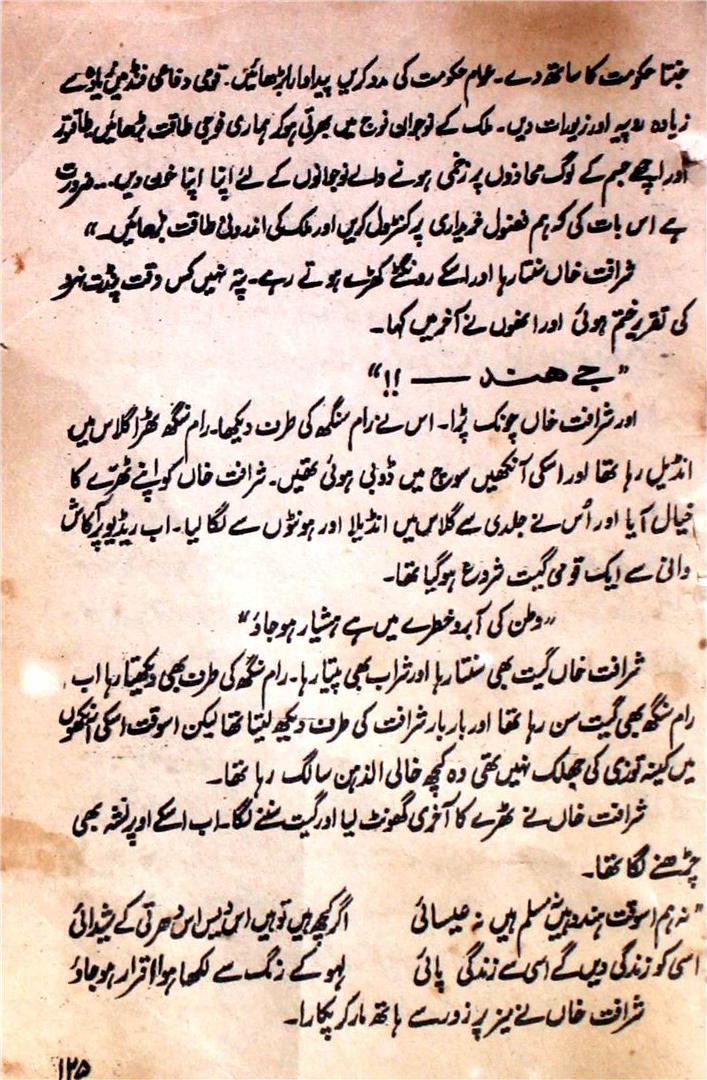 جنتا حکومت کا ساتھ دے۔ عوام حکومت کی مدد کریں پیداوار بڑھائیں۔ قومی دفاعی فنڈ میں زیادہ سے
زیادہ روپیہ اور زیورات دیں۔ ملک کے نوجوان فوج میں بھرتی ہو کر ہماری فوجی طاقت بڑھائیں۔ طاقتور
اور اچھے جسم کے لوگ محاذوں پر زخمی ہونے والے نوجوانوں کے لئے اپنا اپنا خون دیں... ضرورت
ہے اس بات کی کہ ہم فضول خریداری پر کنٹرول کریں اور ملک کی اندرونی طاقت بڑھائیں۔"
شرافت خاں سنتا رہا اور اسکے رونگٹے کھڑے ہوتے رہے۔ پتہ نہیں کس وقت پنڈت نہرو
کی تقریر ختم ہوئی اور انھوں نے آخر میں کہا۔
"جے ھند —— !!"
اور شرافت خاں چونک پڑا۔ اس نے رام سنگھ کی طرف دیکھا۔ رام سنگھ ٹھرّا گلاس میں
انڈیل رہا تھا اور اسکی آنکھیں سوچ میں ڈوبی ہوئی تھیں۔ شرافت خاں کو اپنے ٹھرّے کا
خیال آیا اور اُس نے جلدی سے گلاس میں انڈیلا اور ہونٹوں سے لگا لیا۔ اب ریڈیو پر آکاش
وانی سے ایک قومی گیت شروع ہو گیا تھا۔
"وطن کی آبرو خطرے میں ہے ہشیار ہو جاؤ"
شرافت خاں گیت بھی سنتا رہا اور شراب بھی پیتا رہا۔ رام سنگھ کی طرف بھی دیکھتا رہا اب
رام سنگھ بھی گیت سن رہا تھا اور بار بار شرافت کی طرف دیکھ لیتا تھا لیکن اسوقت اسکی آنکھوں
میں کینہ توزی کی جھلک نہیں تھی وہ کچھ خالی الذہن سا لگ رہا تھا۔
شرافت خاں نے ٹھرّے کا آخری گھونٹ لیا اور گیت سننے لگا۔ اب اسکے اوپر نشہ بھی
چڑھنے لگا تھا۔
"نہ ہم اسوقت ہندو ہیں نہ مسلم ہیں نہ عیسائی اگر کچھ ہیں تو ہیں اس دیس اس دھرتی کے شیدائی
اسی کو زندگی دیں گے اسی سے زندگی پائی لہو کے رنگ سے لکھا ہوا اقرار ہو جاؤ
شرافت خاں نے میز پر زور سے ہاتھ مار کر پکارا۔
۱۲۵